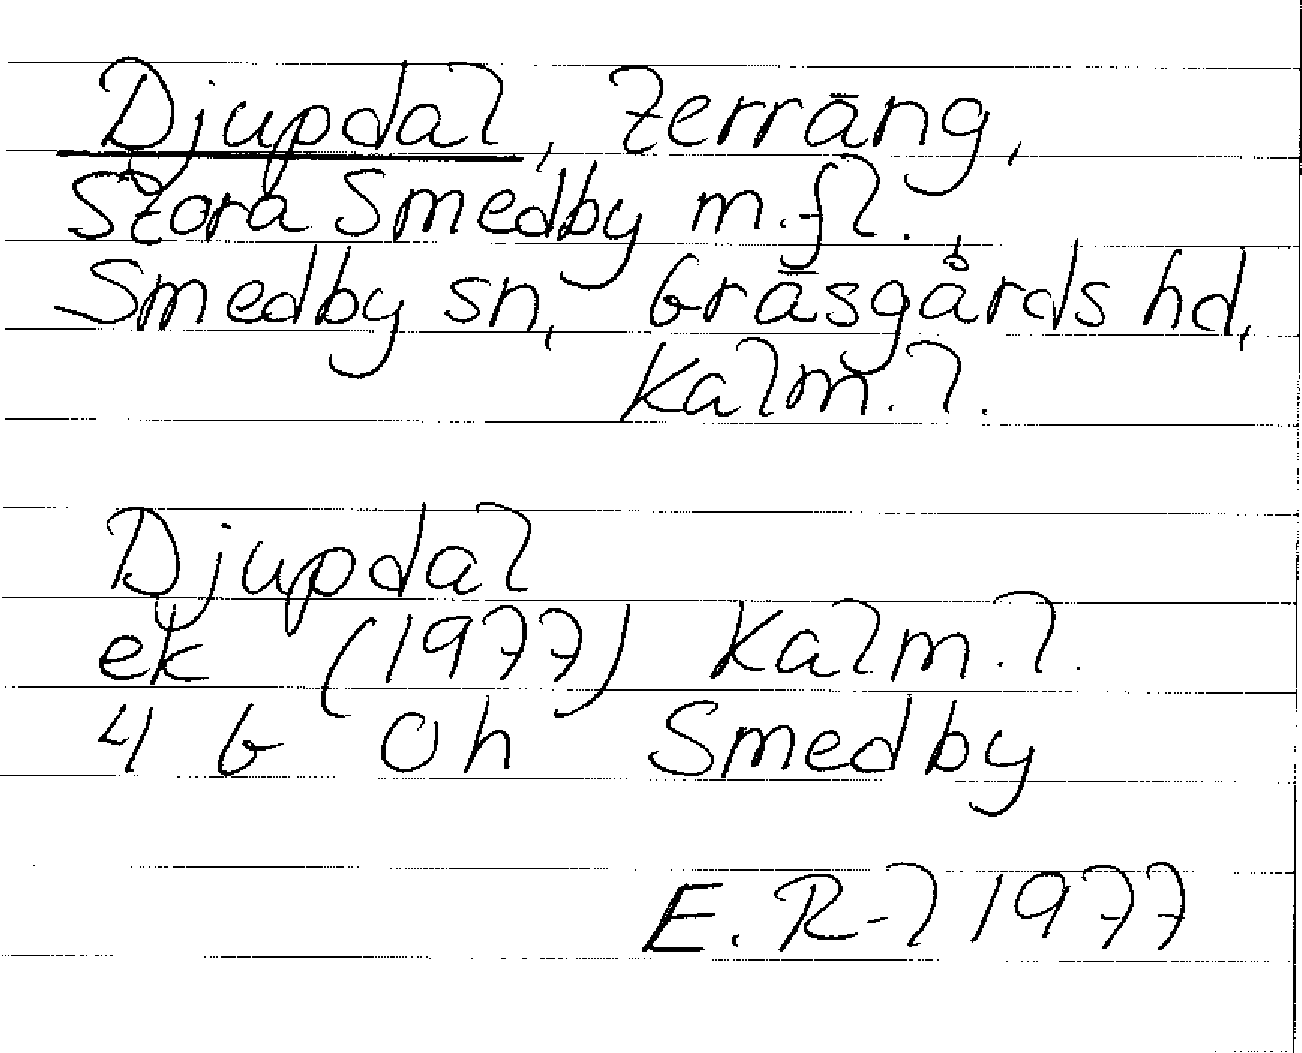 Djupdal, terräng,
Stora Smedby m.fl.,
Smedby sn, Gräsgårds hd,
Kalm. l.
Djupdal
ek (1977) Kalm. l.
4 G Oh Smedby
E. R-l 1977